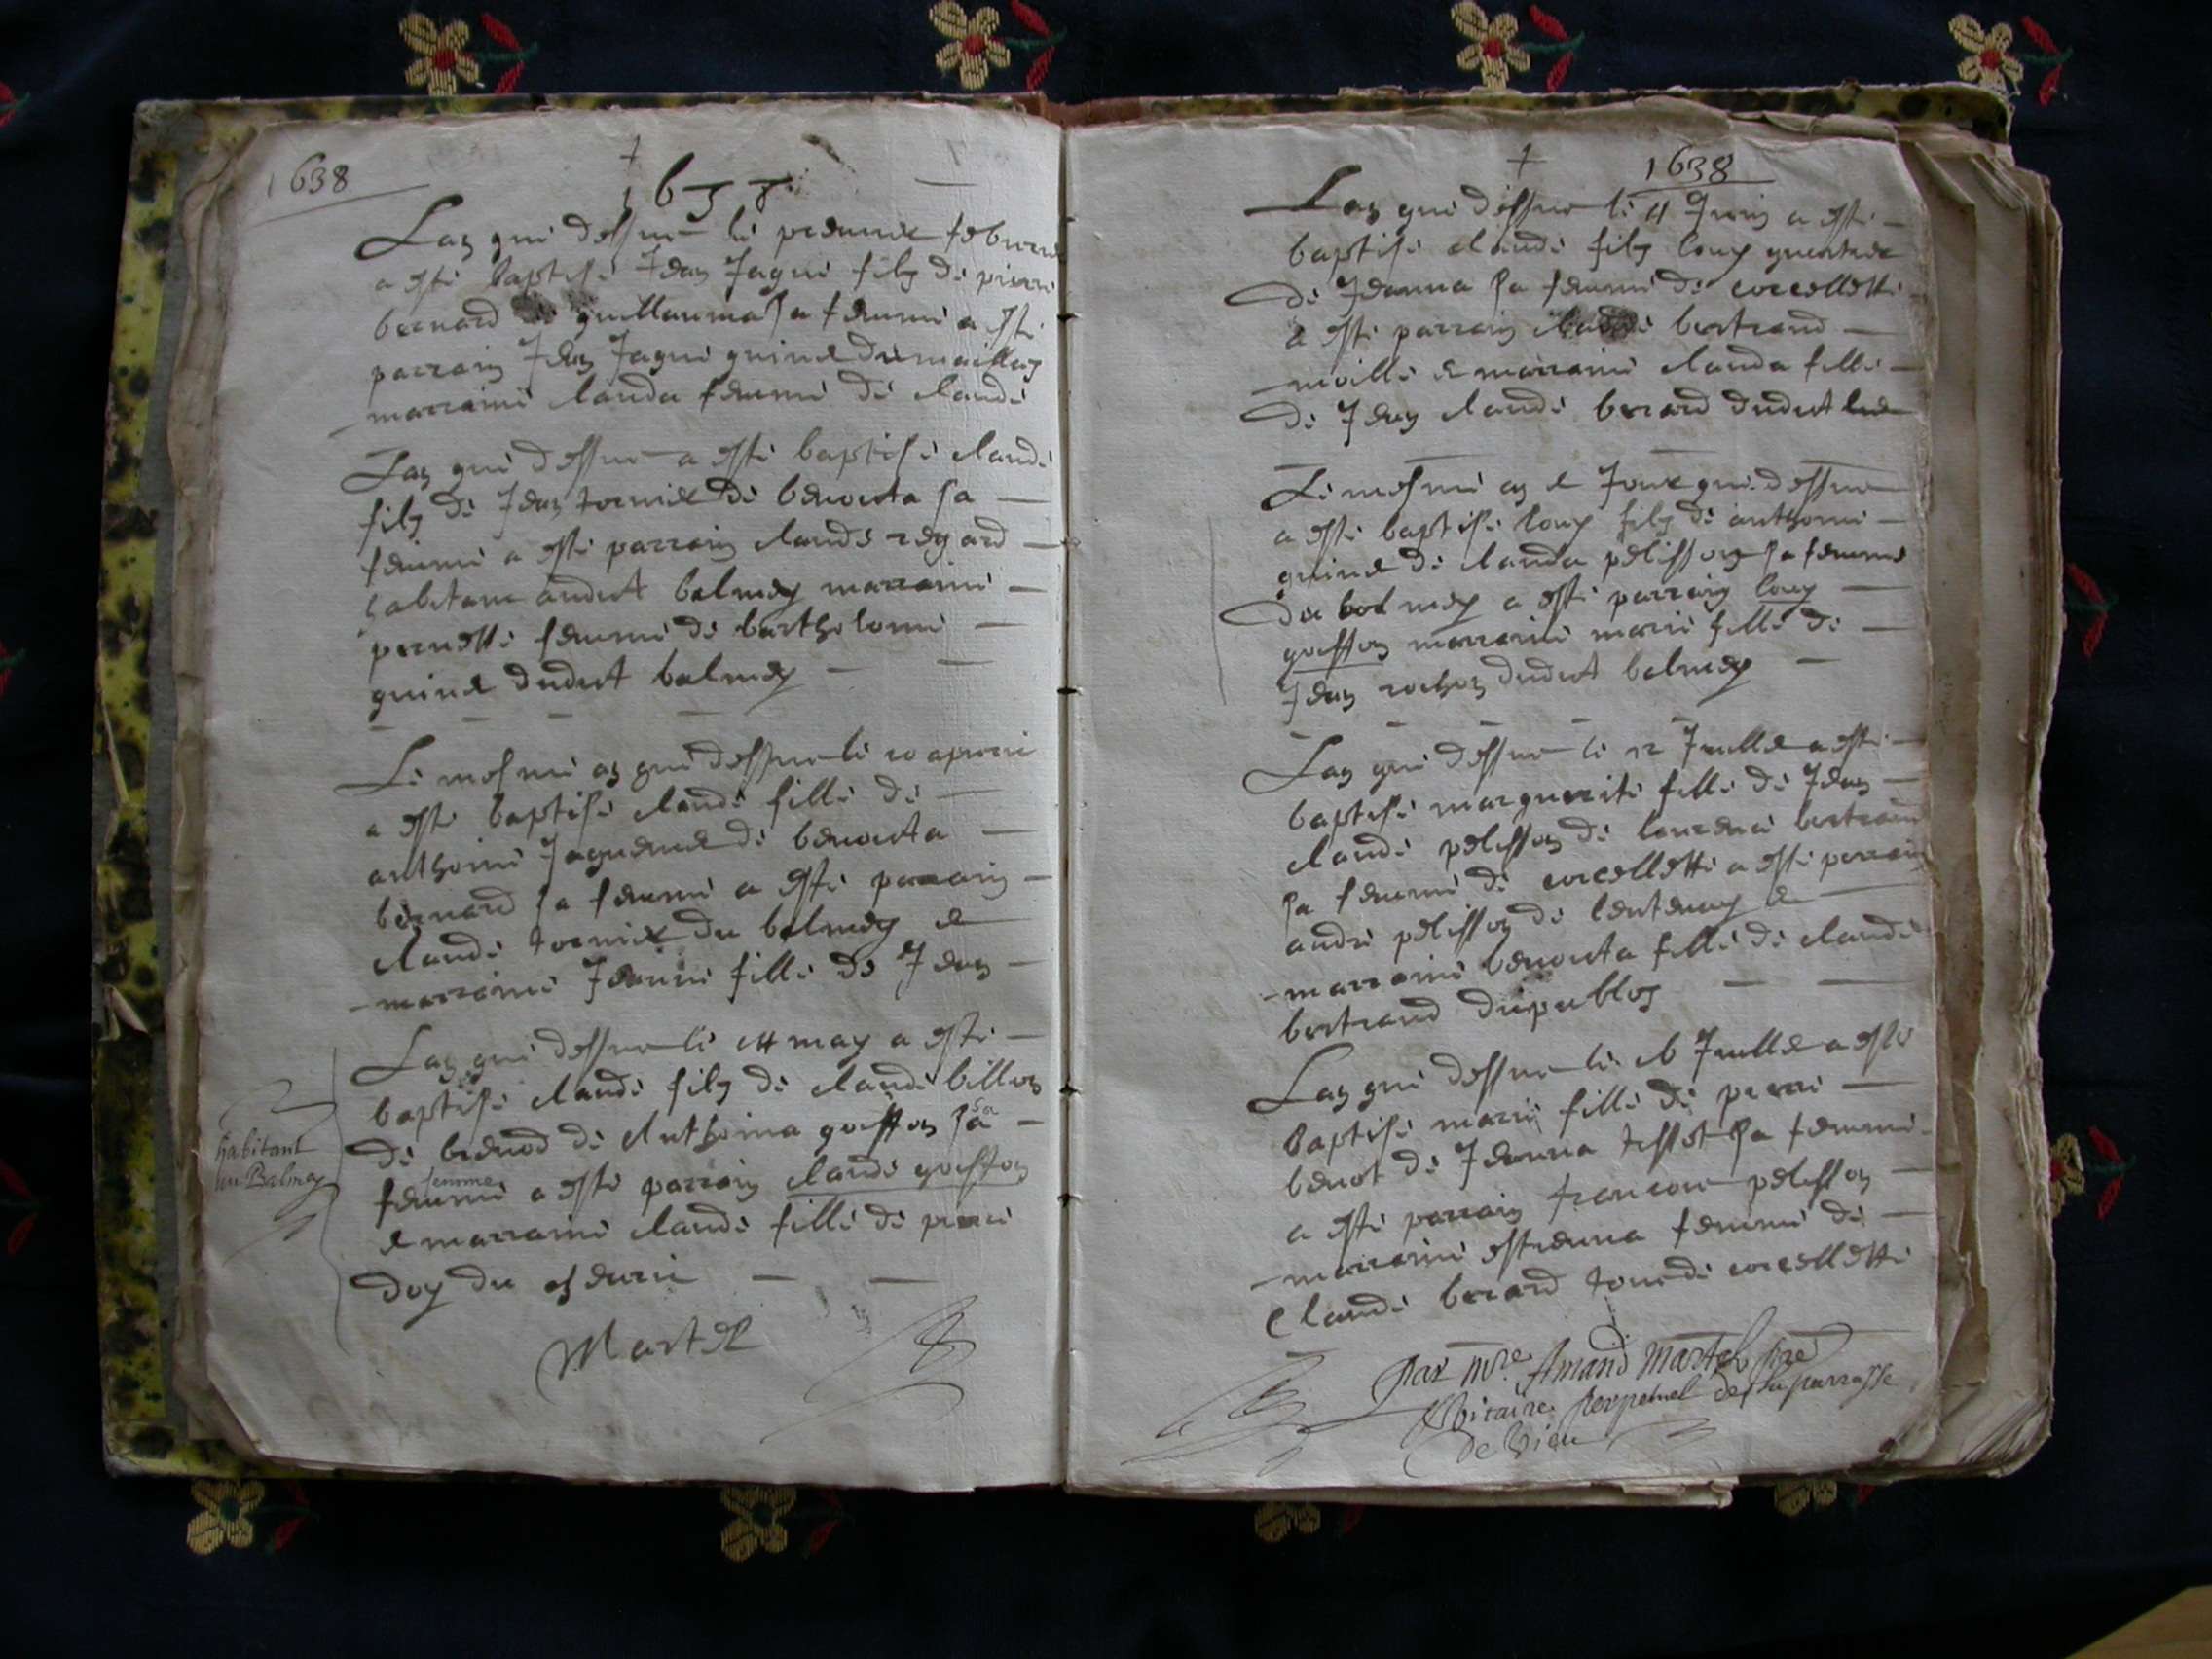 1638
1638
Lan que dessus le premier febvrier
a este baptise Jean Jaque filz de pierre
bernard guillauma sa femme a este
parrain Jean Jaque guinet du maillay
marraine clauda femme de claude
Lan que dessus a este baptise claude
filz de Jean tornier de benoicta sa
femme a este parrain claude regard
habitant audict balmey marraine
pernette femme de bartholome
guinet dudict balmey
Le mesme an que dessus le apvril
a este baptise claude fille de
anthoine Jaquenet de benoicta
bernard sa femme a este parrain
claude tornier du balmey et
marraine Jeanne fille de Jean
Lan que dessus le may a este
baptise claude filz de claude billion
de brenod de Anthoina goiffon sa
sa
femme a este parrain claude goiffon
femme
et marraine claude fille de pierre
doy du
habitant
au Balmay
Martel
1638
Lan que dessus le 11 Juin a este
baptise claude filz louy
de Jeanna sa femme de corcellette
a este parrain claude bertrand
et marraine clauda fille
de Jean claude berard dudict lieu
Le mesme an et Jour que dessus
a este baptise louy filz de anthoine
guinet de clauda pelisson sa femme
du balmey a este parrain louy
goiffon marraine marie fille de
Jean rochon dudict balmey
Lan que dessus le 12 Juillet a este
baptise marguerite fille de Jean
claude pelisson de laurence bertrand
sa femme de corcellette a este parrain
andre pelisson de lentenay et
marraine benoicta fille de claude
bertrand
Lan que dessus le Juillet a este
baptise marie fille de pierre
benot de Jeanna tissot sa femme
a este parrain francois pelisson
marraine estienna femme de
Claude berard tous de corcellette
Par mre Amand Martel pre
Vicaire perpetuel de la parrosse
de Vieu